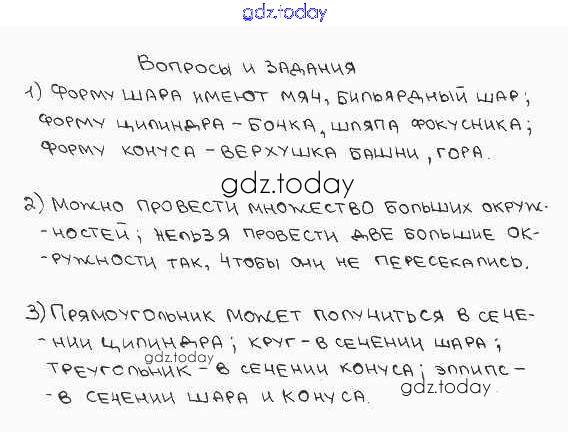 gdz.today
Вопросы и задания
1) Форму шара имеют мяч, бильярдный шар;
форму цилиндра – бочка, шляпа фокусника;
форму конуса – верхушка башни, гора.
gdz.today
2) Можно провести множество больших окруж-
-ностей; нельзя провести две большие ок-
-ружности так, чтобы они не пересекались.
3) Прямоугольник может получиться в сече-
-нии цилиндра; круг – в сечении шара;
gdz.today
треугольник – в сечении конуса; эллипс –
gdz.today
-в сечении шара и конуса.